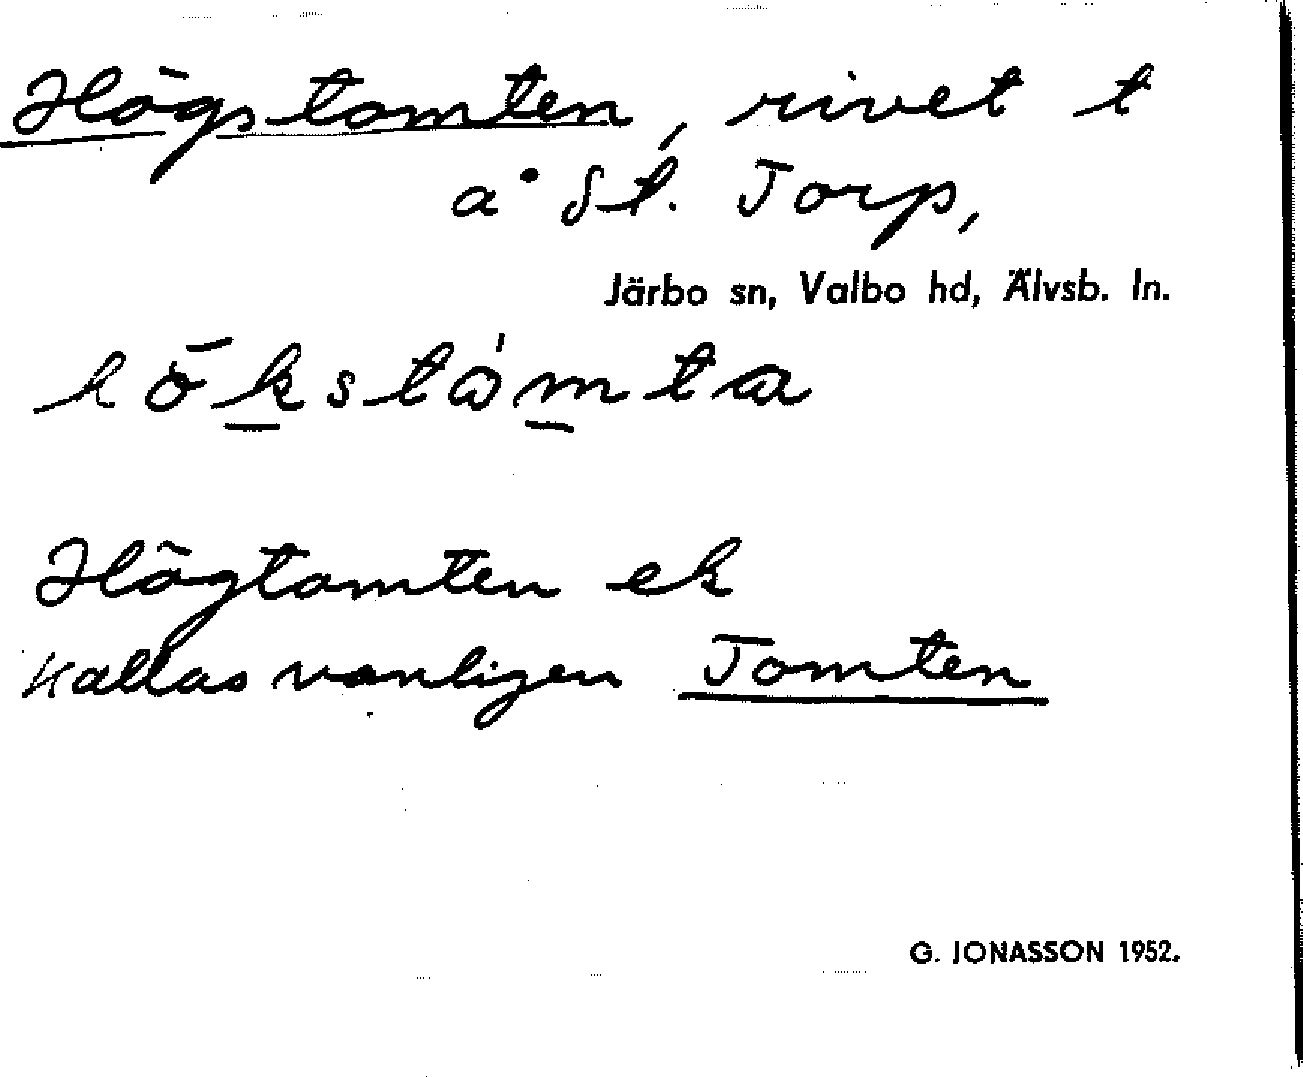 Högstomten, rivet t
å St. Torp,
Järbo sn, Valbo hd, Älvsb. ln.
hȫkstòmta
Högtomten ek
kallas vanligen Tomten
G. JONASSON 1952.